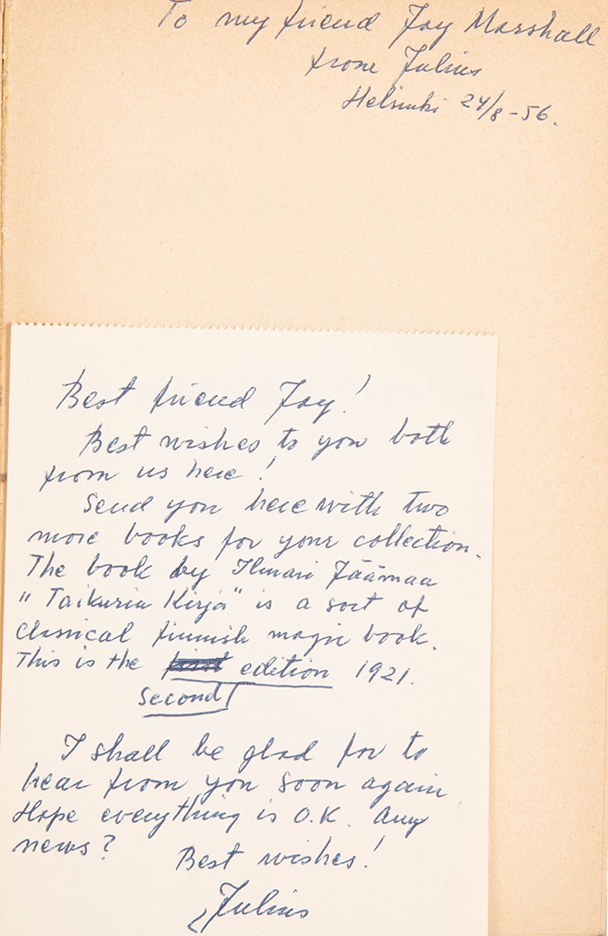 To my friend Jay Marshall
from Julius
Helsinki 24/8-56.
Best friend Jay!
Best wishes to you both
from us here!
Send you herewith two
more books for your collection.
The book by Ilmari Jäämaa
"Taikurin Kirja" is a sort of
classical finnish magic book.
This is the first edition 1921.
second
I shall be glad for to
hear from you soon again
Hope everything is O.K. Any
news?
Best wishes!
Julius